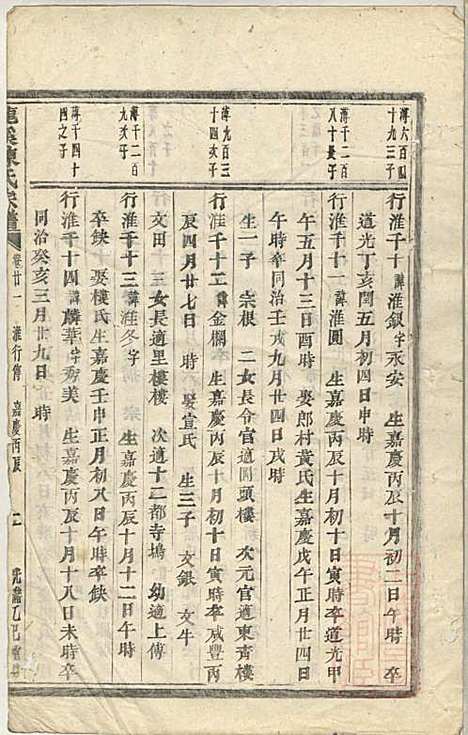 溥六百四
十九三子
行淮千十諱淮銀字永安 生嘉慶丙辰十月初二日午時 卒
道光丁亥閏五月初四日申時
溥千二百
八十長子
行淮千十一諱淮圃 生嘉慶丙辰十月初十日寅時卒道光甲
午五月十三日酉時 娶郎村黃氏生嘉慶戊午正月廿四日
午時卒同治壬戌九月廿四日戌時
溥九百三
十四次子
行淮千十二諱金欄 生嘉慶丙辰十月初十日寅時卒咸豐丙
辰四月廿七日 時 娶宣氏 生三子 文銀 文牛
文田 三女長適里樓樓 次適十二都寺塢 幼適上傅
生一子 宗根 二女長令官適圓頭樓 次元官適東青樓
溥千二百
九次子
行淮千十三諱淮冬字 生嘉慶丙辰十月十二日午時
卒缺 娶樓氏生嘉慶壬申正月初八日午時卒缺
溥千四十
四之子
行淮千十四諱麟華字秀美 生嘉慶丙辰十月十八日未時卒
同治癸亥三月廿九日 時
龍溪陳氏宗譜 卷廿一 淮行傳 嘉慶丙辰 二 光緒乙巳重